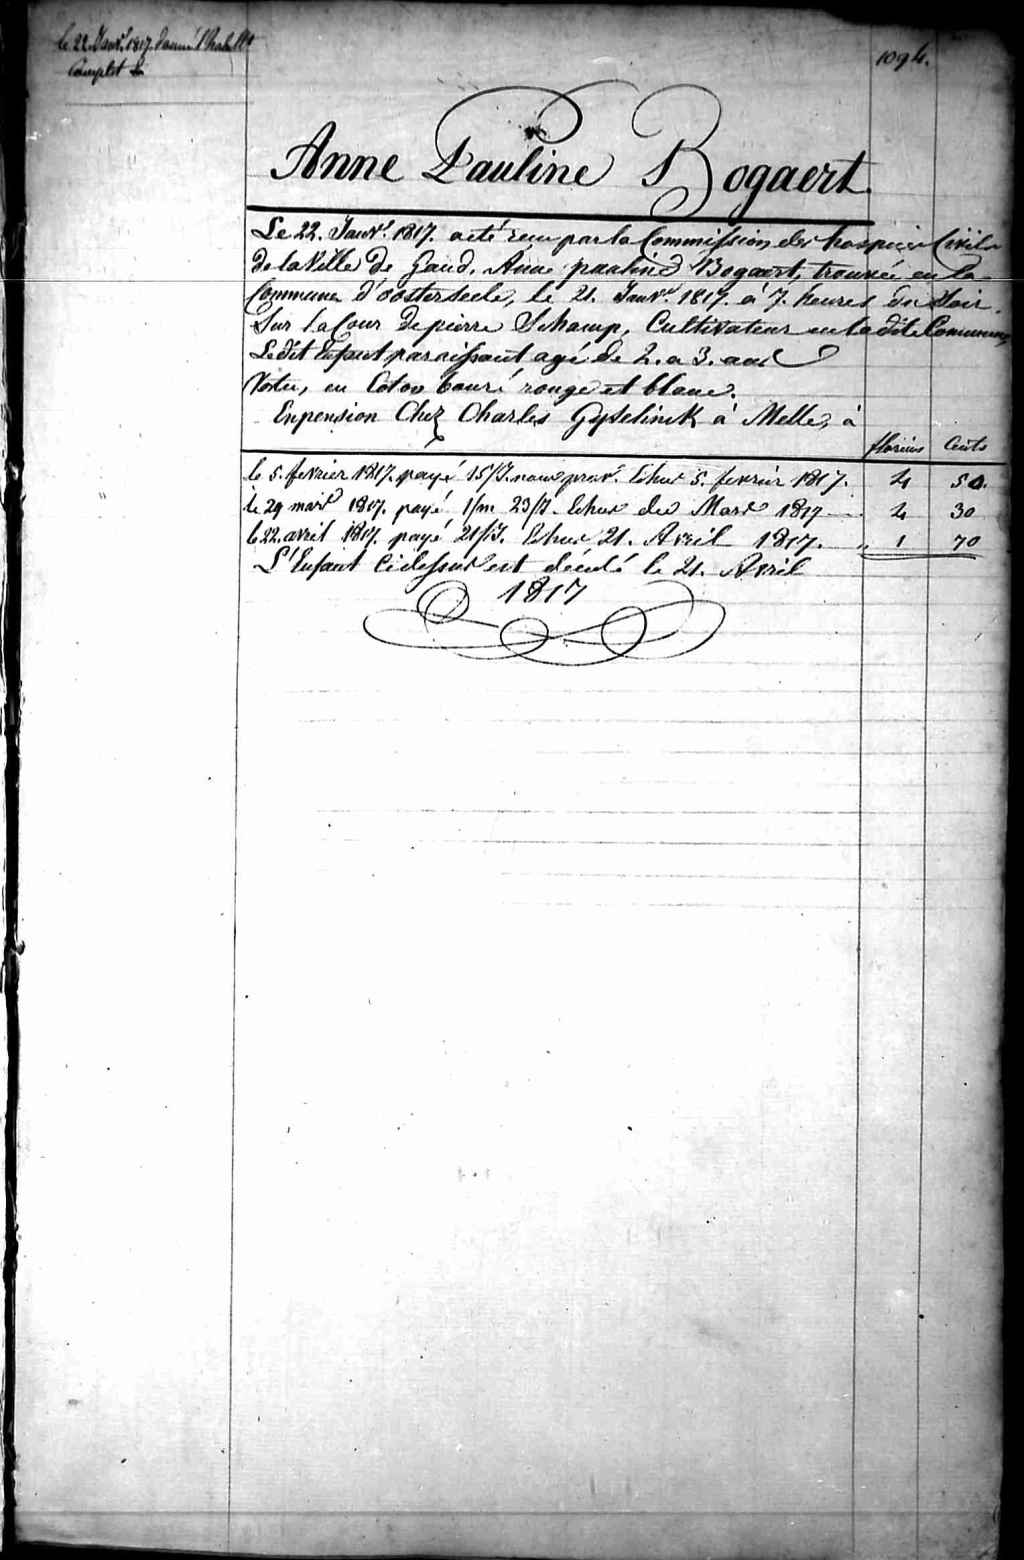 le 22. Janvr. 1817. donné l'habillt
Complet
1094.
Anne Pauline Bogaert
Le 22. Janvr. 1817. a eté recu par la Commission des hospices Civils
de la Ville de Gand, Anne pauline Bogaert, trouvée en la
Commune d'oosterseele, le 21. Janvr. 1817. à 7. heures du Soir.
Sur la Cour de pierre Schamp, Cultivateur en ladite Commune,
Ledit Enfant paraissant agé de 2. a 3. ans
Vetu, en Coton bouré rouge et blanc.
En pension Chez Charles Gyselinck à Melle, à
florins Cents
le 5. fevrier 1817. payé 15/J. Echus 5. fevrier 1817. 4 50.
le 29 mars 1817. payé 1/m 23/J. Echus de Mars 1817 4 30
le 22. avril 1817. payé 21/J. Echus 21. Avril 1817. „ 1 70
L'Enfant Cidessus est décédé le 21. Avril
1817